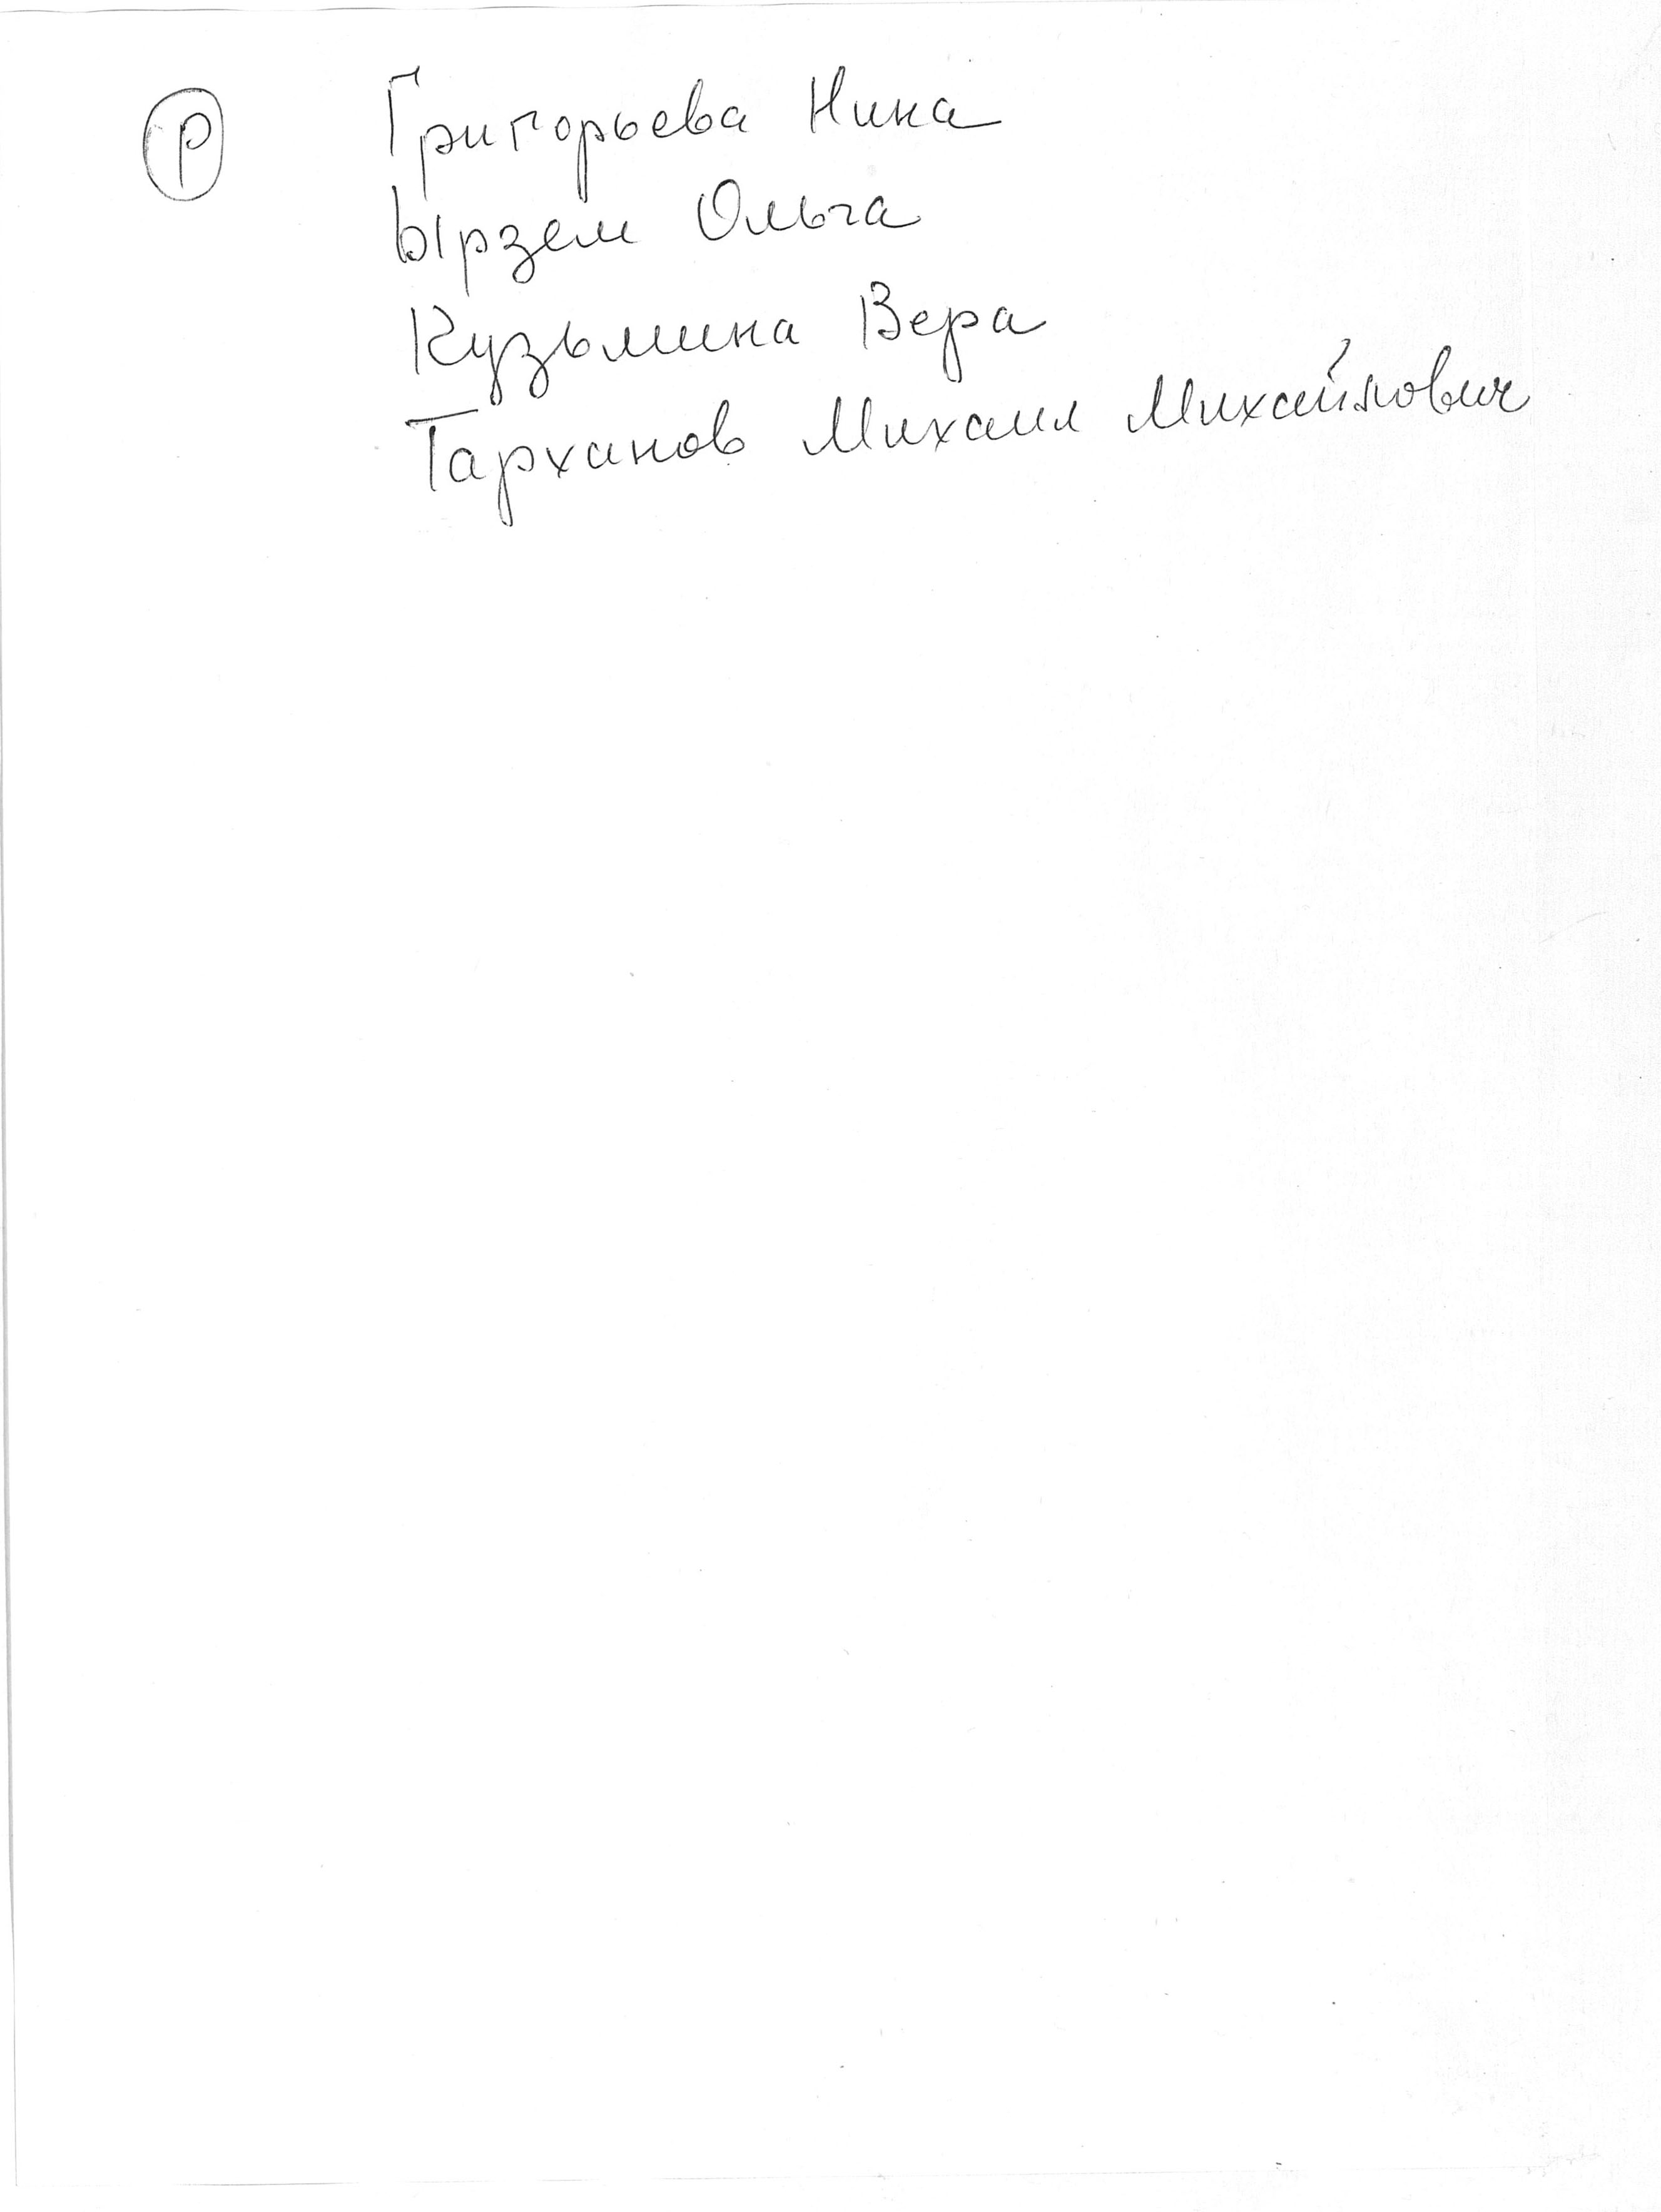 Р Григорьева Нина
Ырзем Ольга
Кузьмина Вера
Тарханов Михаил Михайлович